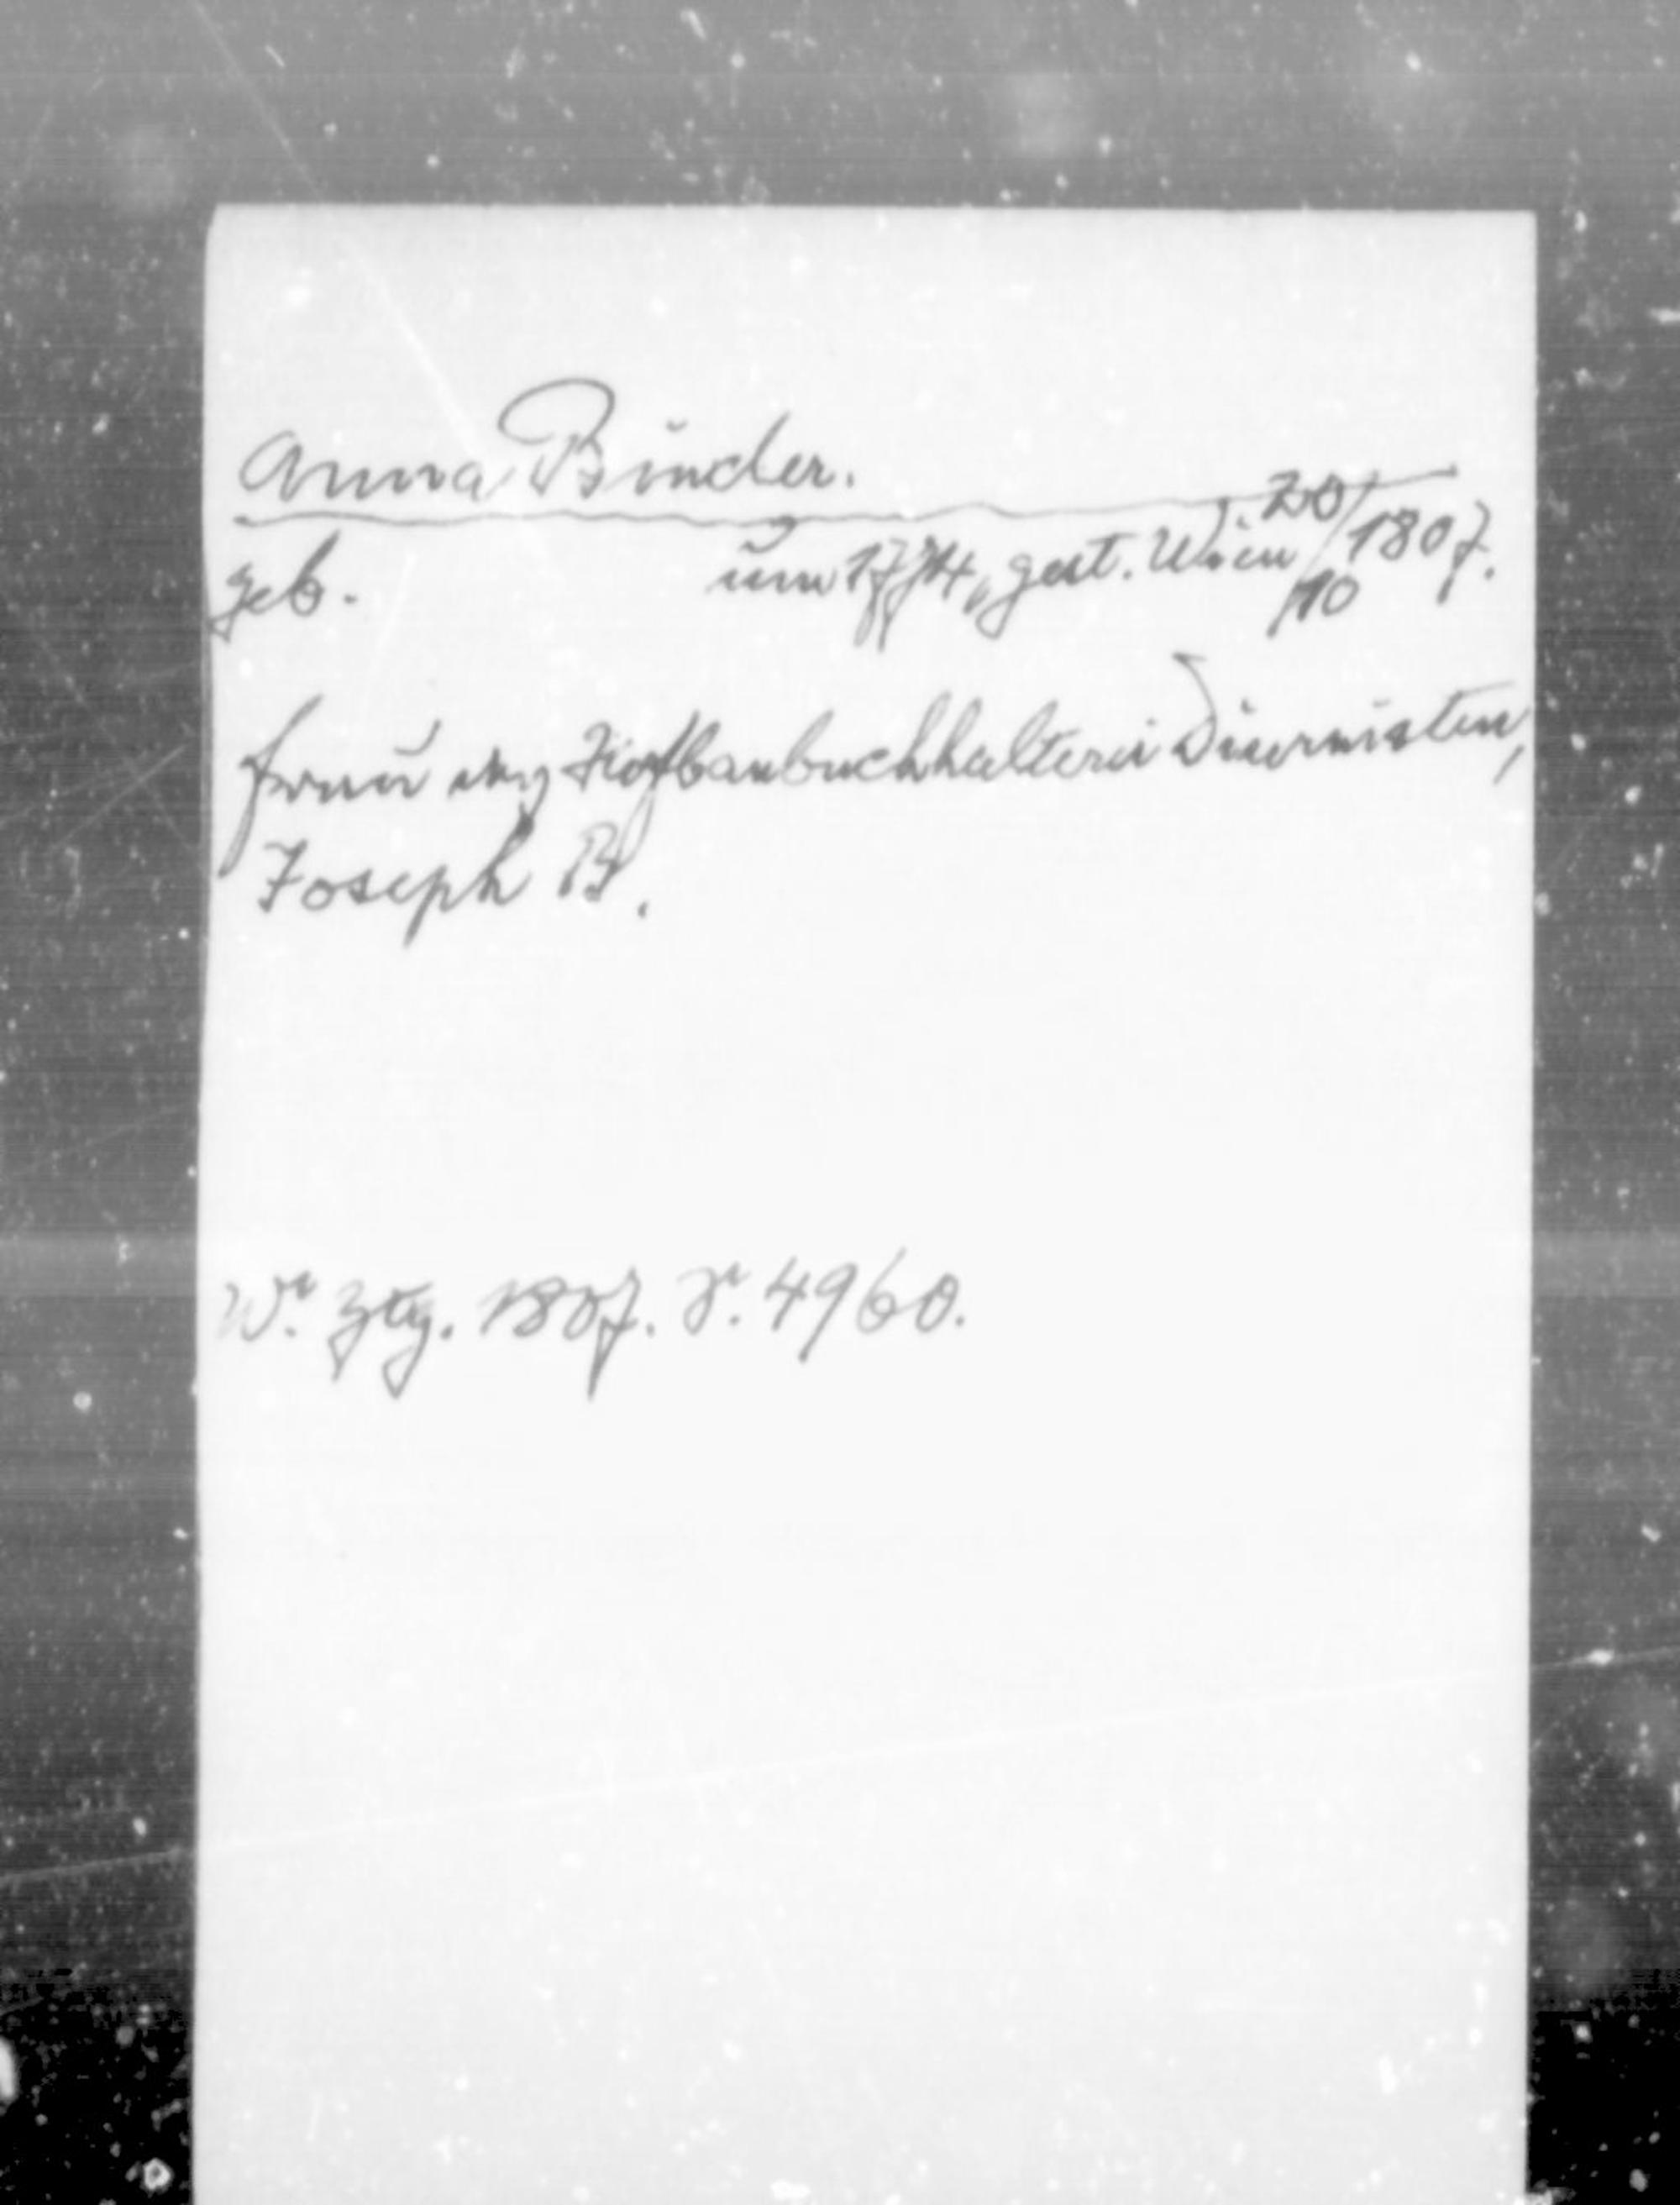 Anna Binder.
geb. um 1774, gest. Wien 20/10 1807.
Frau des Hofbaubuchhalterei Diurnisten,
Joseph B.
Wr. Ztg. 1807. S. 4960.